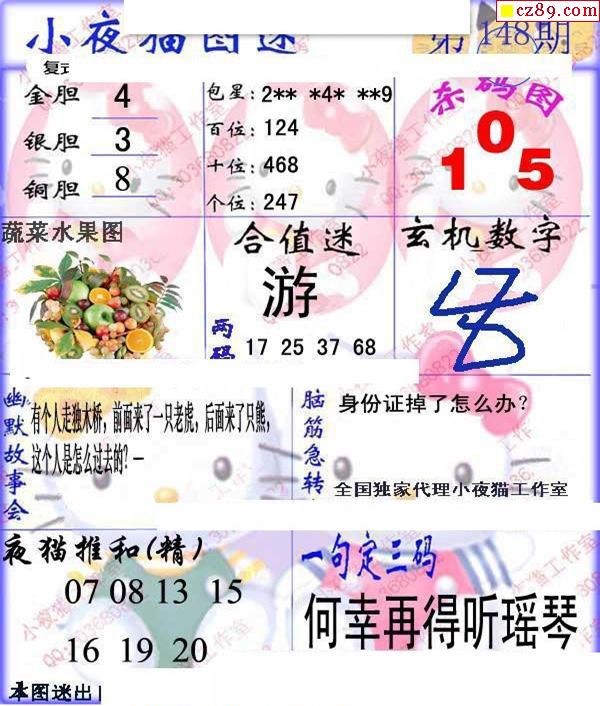 cz89.com
小夜猫图迷 第148期
金胆 4
银胆 3
铜胆 8
包星: 2** *4* **9
百位: 124
十位: 468
个位: 247
杀码图
1 0 5
蔬菜水果图
合值迷
游
两码
17 25 37 68
玄机数字
幽默故事会
有个人走独木桥，前面来了一只老虎，后面来了只熊，
这个人是怎么过去的？—
脑筋急转
身份证掉了怎么办?
全国独家代理小夜猫工作室
夜猫推和(精)
07 08 13 15
16 19 20
一句定三码
何幸再得听瑶琴
本图迷出